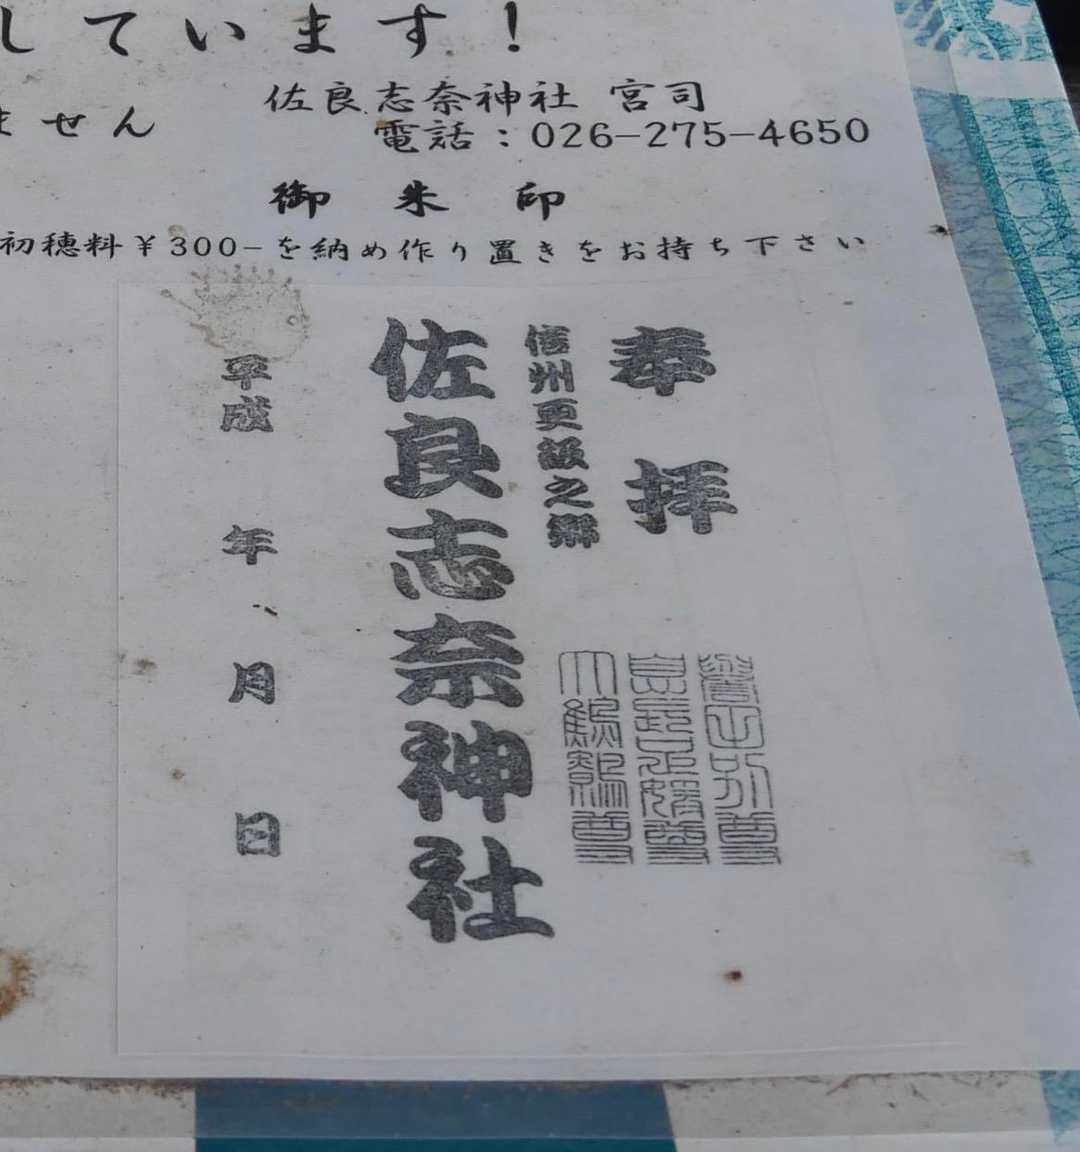 しています！
ません
佐良志奈神社 宮司
電話：026-275-4650
御朱印
初穂料￥300-を納め作り置きをお持ち下さい
奉拝
譽田別尊
息長足姫尊
大鷦鷯尊
信州更級之郷
佐良志奈神社
平成 年 月 日